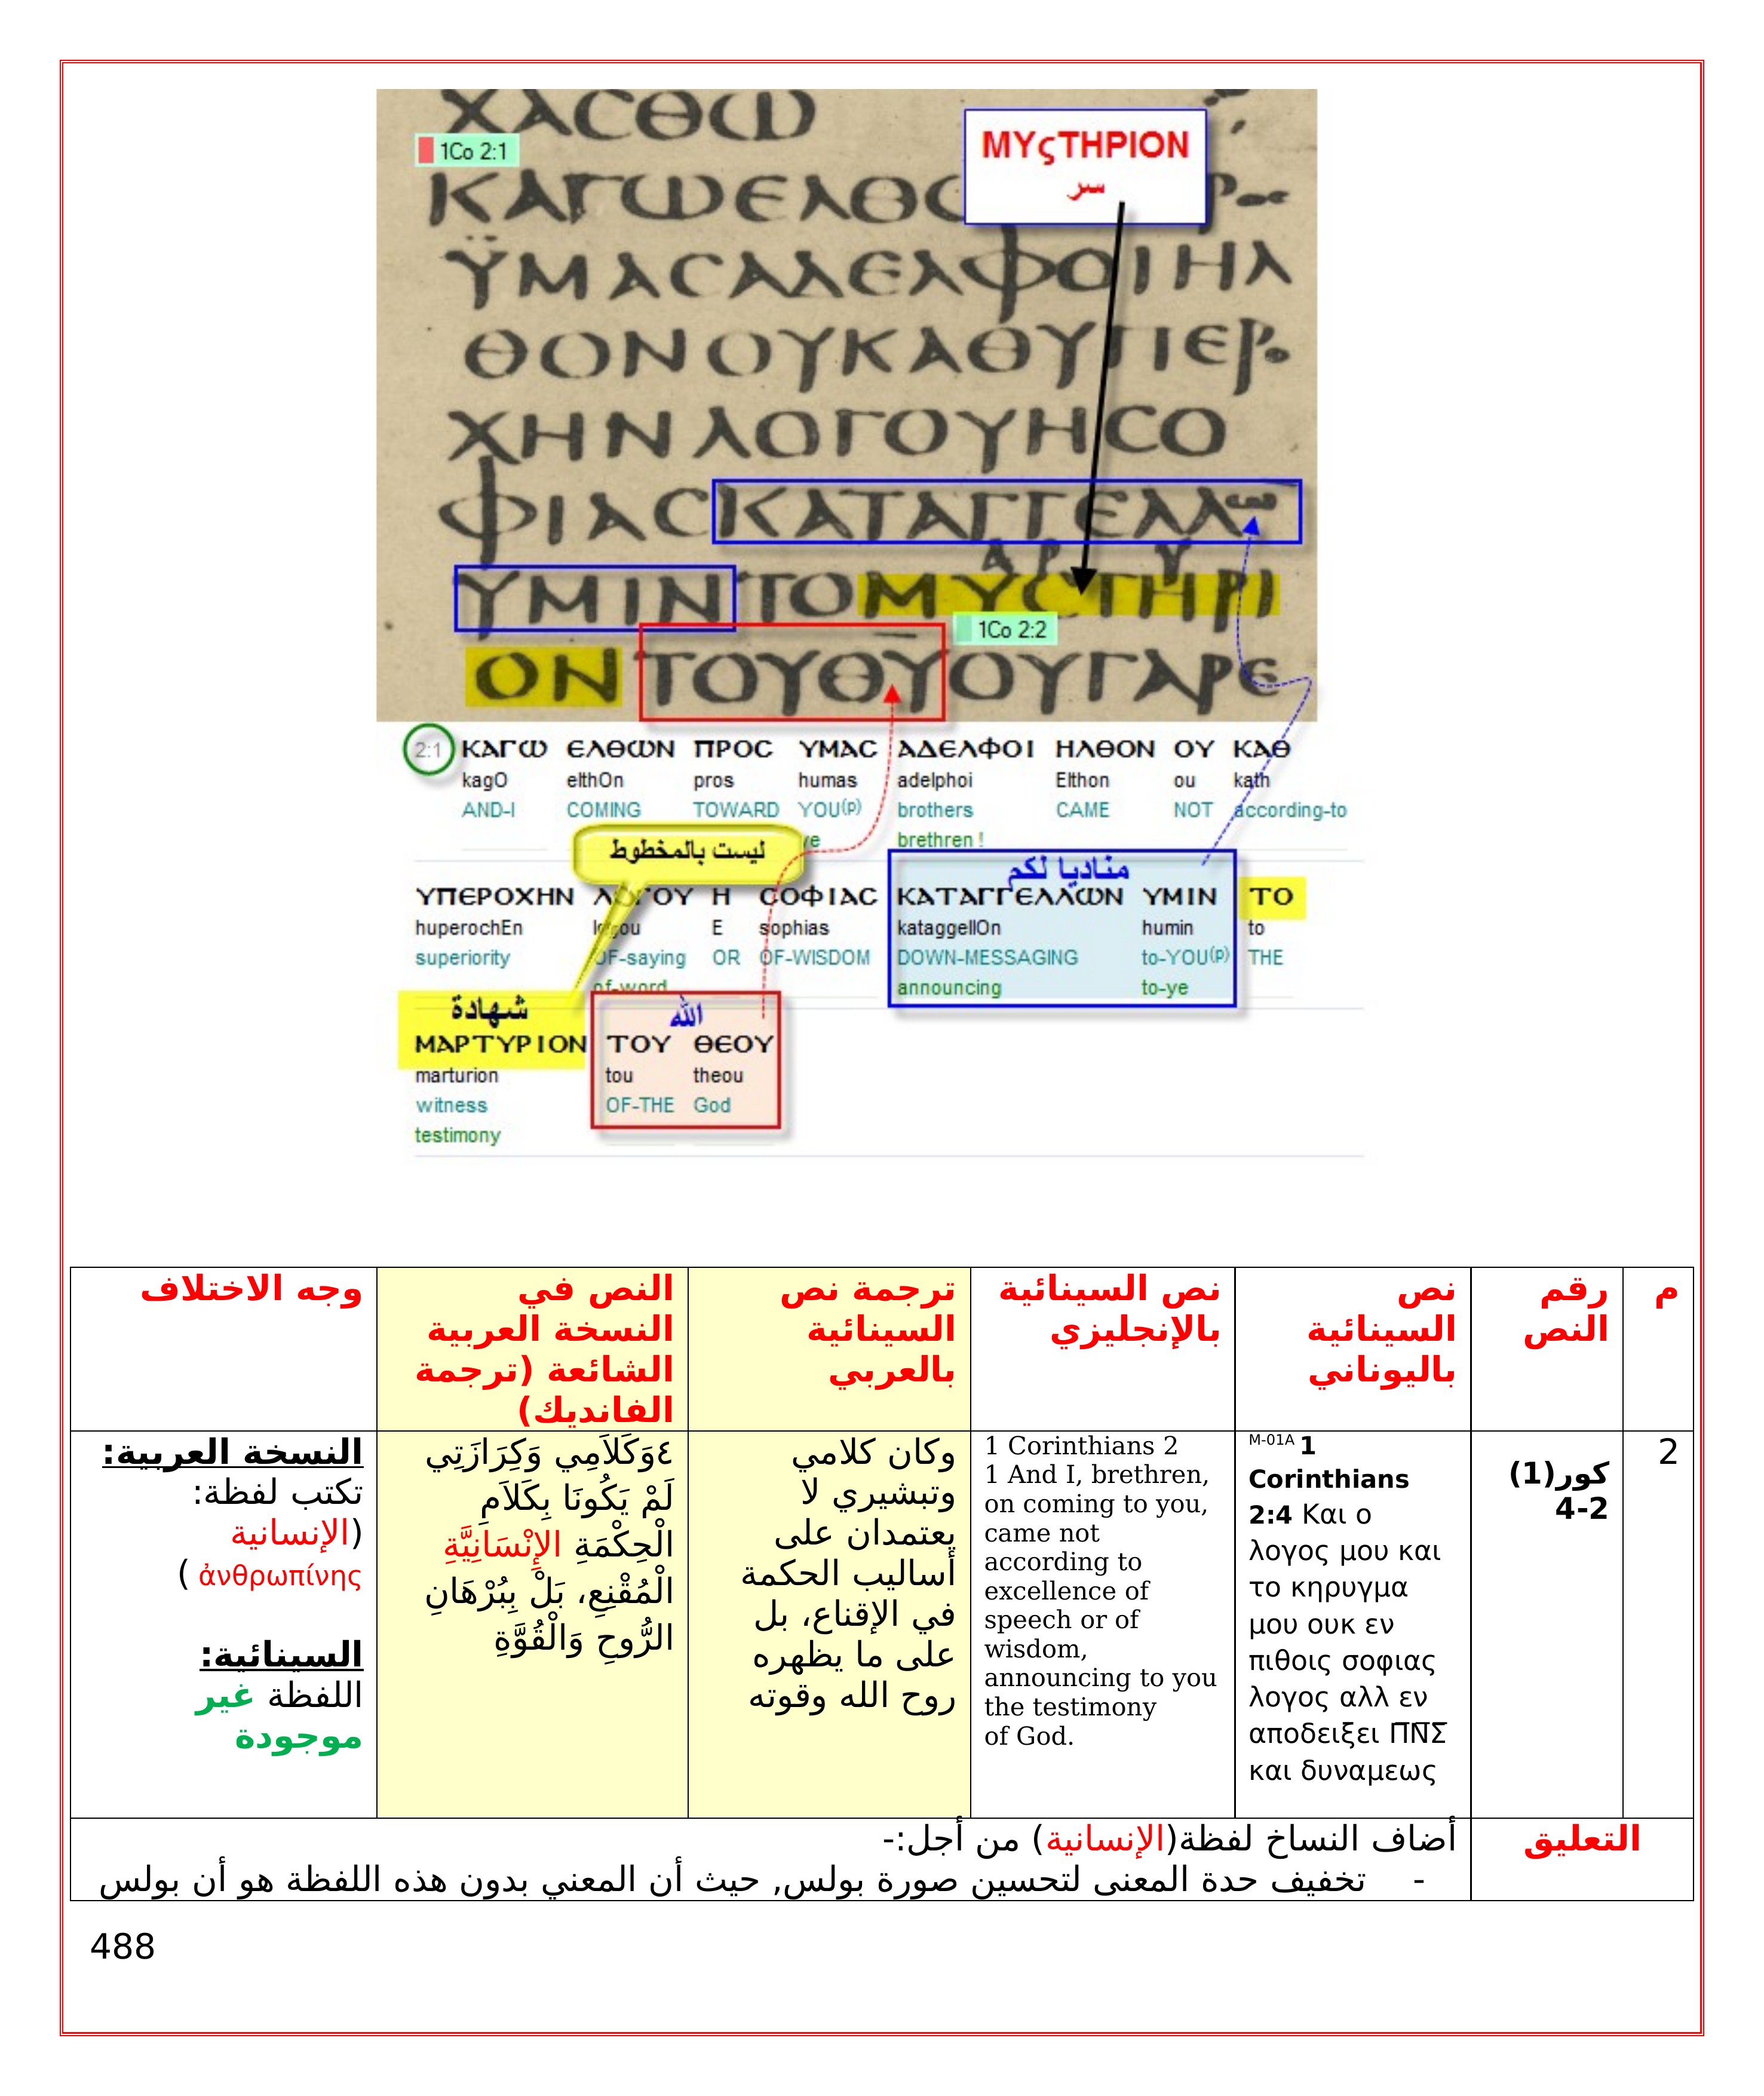 ΧΑCΘΩ
1Co 2:1
ΜΥςΤΗΡΙΟΝ
سر
ΚΑΓΩΕΛΘ
ΫΜΑCΑΔΕΛΦΟΙΗΛ
ΘΟΝΟΥΚΑΘΥΠΕΡΟ
ΧΗΝΛΟΓΟΥΗCΟ
ΦΙΑCΚΑΤΑΓΓΕΛΛΩ
ΑΡ Υ
ΥΜΙΝΤΟΜΥCΤΗΡΙ
1Co 2:2
ΟΝΤΟΥΘΥΟΥΓΑΡΕ
2:1 ΚΑΓΩ ΕΛΘΩΝ ΠΡΟC ΥΜΑC ΑΔΕΛΦΟΙ ΗΛΘΟΝ ΟΥ ΚΑΘ
kagO elthOn pros humas adelphoi Elthon ou kath
AND-I COMING TOWARD YOU(p) brothers CAME NOT according-to
ye brethren !
ليست بالمخطوط
مناديا لكم
ΥΠΕΡΟΧΗΝ ΛΟΓΟΥ Η CΟΦΙΑC ΚΑΤΑΓΓΕΛΛΩΝ ΥΜΙΝ ΤΟ
huperochEn logou E sophias kataggellOn humin to
superiority OF-saying OR OF-WISDOM DOWN-MESSAGING to-YOU(p) THE
of-word announcing to-ye
شهادة
الله
ΜΑΡΤΥΡΙΟΝ ΤΟΥ ΘΕΟΥ
marturion tou theou
witness OF-THE God
testimony
م
رقم
النص
نص
السينائية
باليوناني
نص السينائية
بالإنجليزي
ترجمة نص
السينائية
بالعربي
النص في
النسخة العربية
الشائعة (ترجمة
الفانديك)
وجه الاختلاف
2
كور(1)
4-2
M-01A 1
Corinthians
2:4 Και ο
λογος μου και
το κηρυγμα
μου ουκ εν
πιθοις σοφιας
λογος αλλ εν
αποδειξει Π̅Ν̅Σ̅
και δυναμεως
1 Corinthians 2
1 And I, brethren,
on coming to you,
came not
according to
excellence of
speech or of
wisdom,
announcing to you
the testimony
of God.
وكان كلامي
وتبشيري لا
يعتمدان على
أساليب الحكمة
في الإقناع، بل
على ما يظهره
روح الله وقوته
٤وَكَلاَمِي وَكِرَازَتِي
لَمْ يَكُونَا بِكَلاَمِ
الْحِكْمَةِ الإِنْسَانِيَّةِ
الْمُقْنِعِ، بَلْ بِبُرْهَانِ
الرُّوحِ وَالْقُوَّةِ
النسخة العربية:
تكتب لفظة:
(الإنسانية
ἀνθρωπίνης )
السينائية:
اللفظة غير
موجودة
التعليق
أضاف النساخ لفظة(الإنسانية) من أجل:-
- تخفيف حدة المعنى لتحسين صورة بولس, حيث أن المعني بدون هذه اللفظة هو أن بولس
488